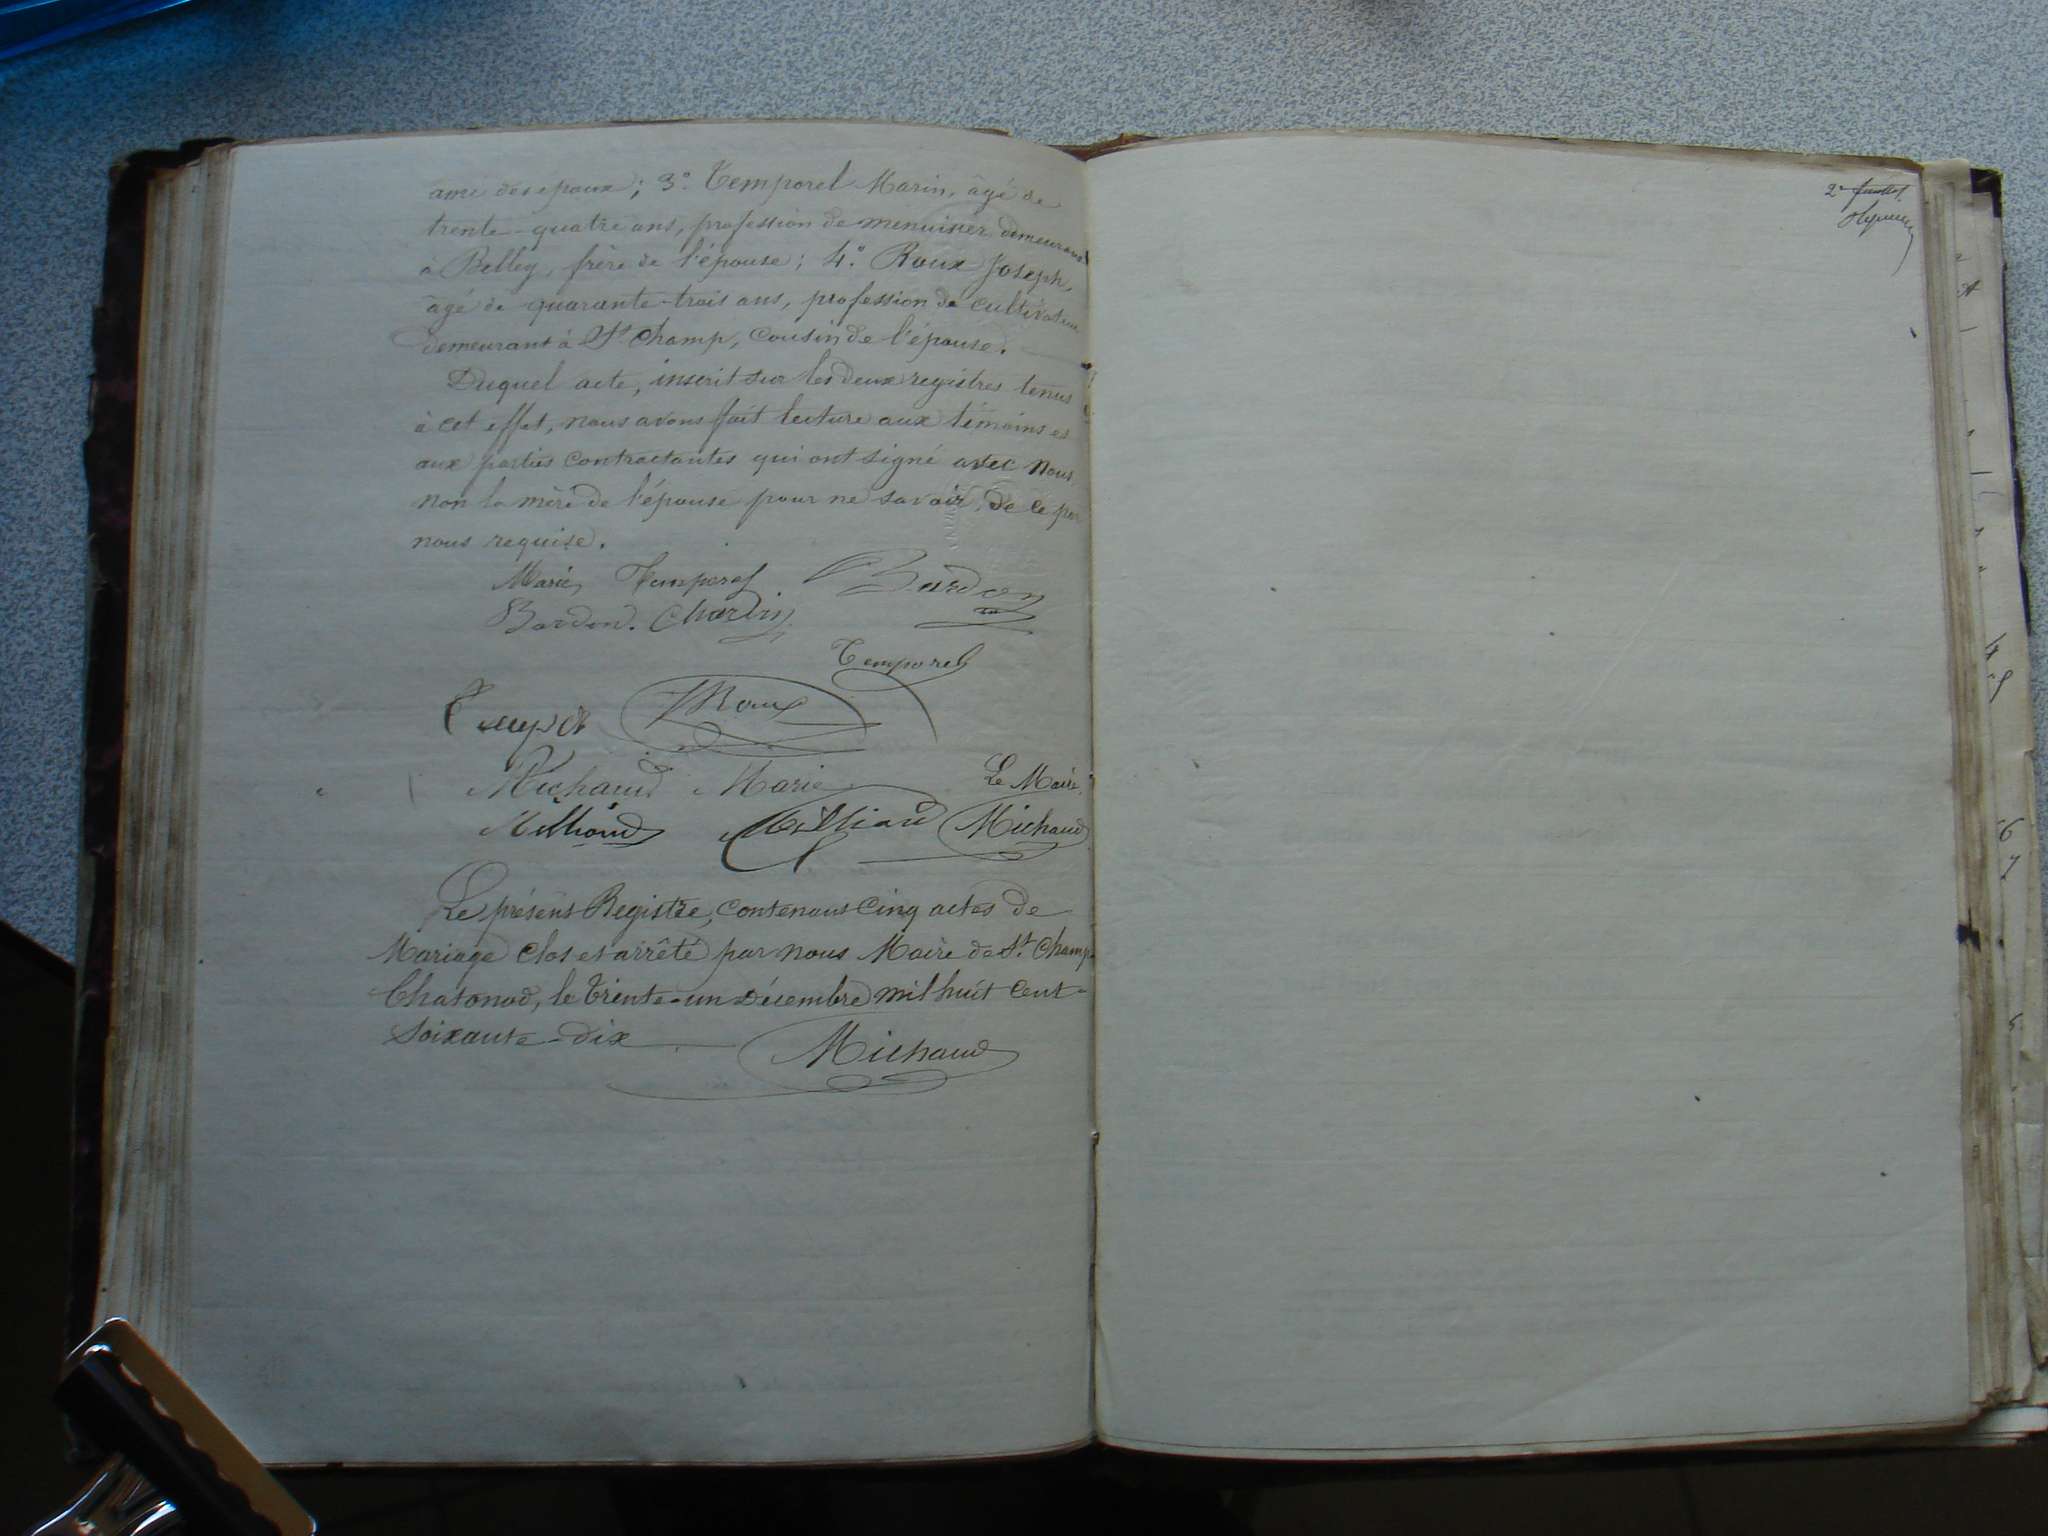 ami des epoux; 3.° Temporel Marin, âgé de
trente-quatre ans, profession de menuisier demeurant
à Belley, frère de l'épouse; 4.° Roux Joseph,
âgé de quarante-trois ans, profession de cultivateur
demeurant à St Champ, cousin de l'épouse.
Duquel acte, inscrit sur les deux registres tenus
à cet effet, nous avons fait lecture aux témoins et
aux parties contractantes qui ont signé avec nous
non la mère de l'épouse pour ne savoir, de ce par
nous requise.
Marie Temporel Bardon
Bardon. Charlin
Temporel
JRoux
Michaud Marie Le Maire,
Milliand Milliand Michaud
Le présent Registre, contenant cinq actes de
Mariage clos et arrêté par nous Maire de St. Champ
Chatonod, le trente-un Décembre mil huit cent
Soixante-dix
Michaud
2e feuillet.